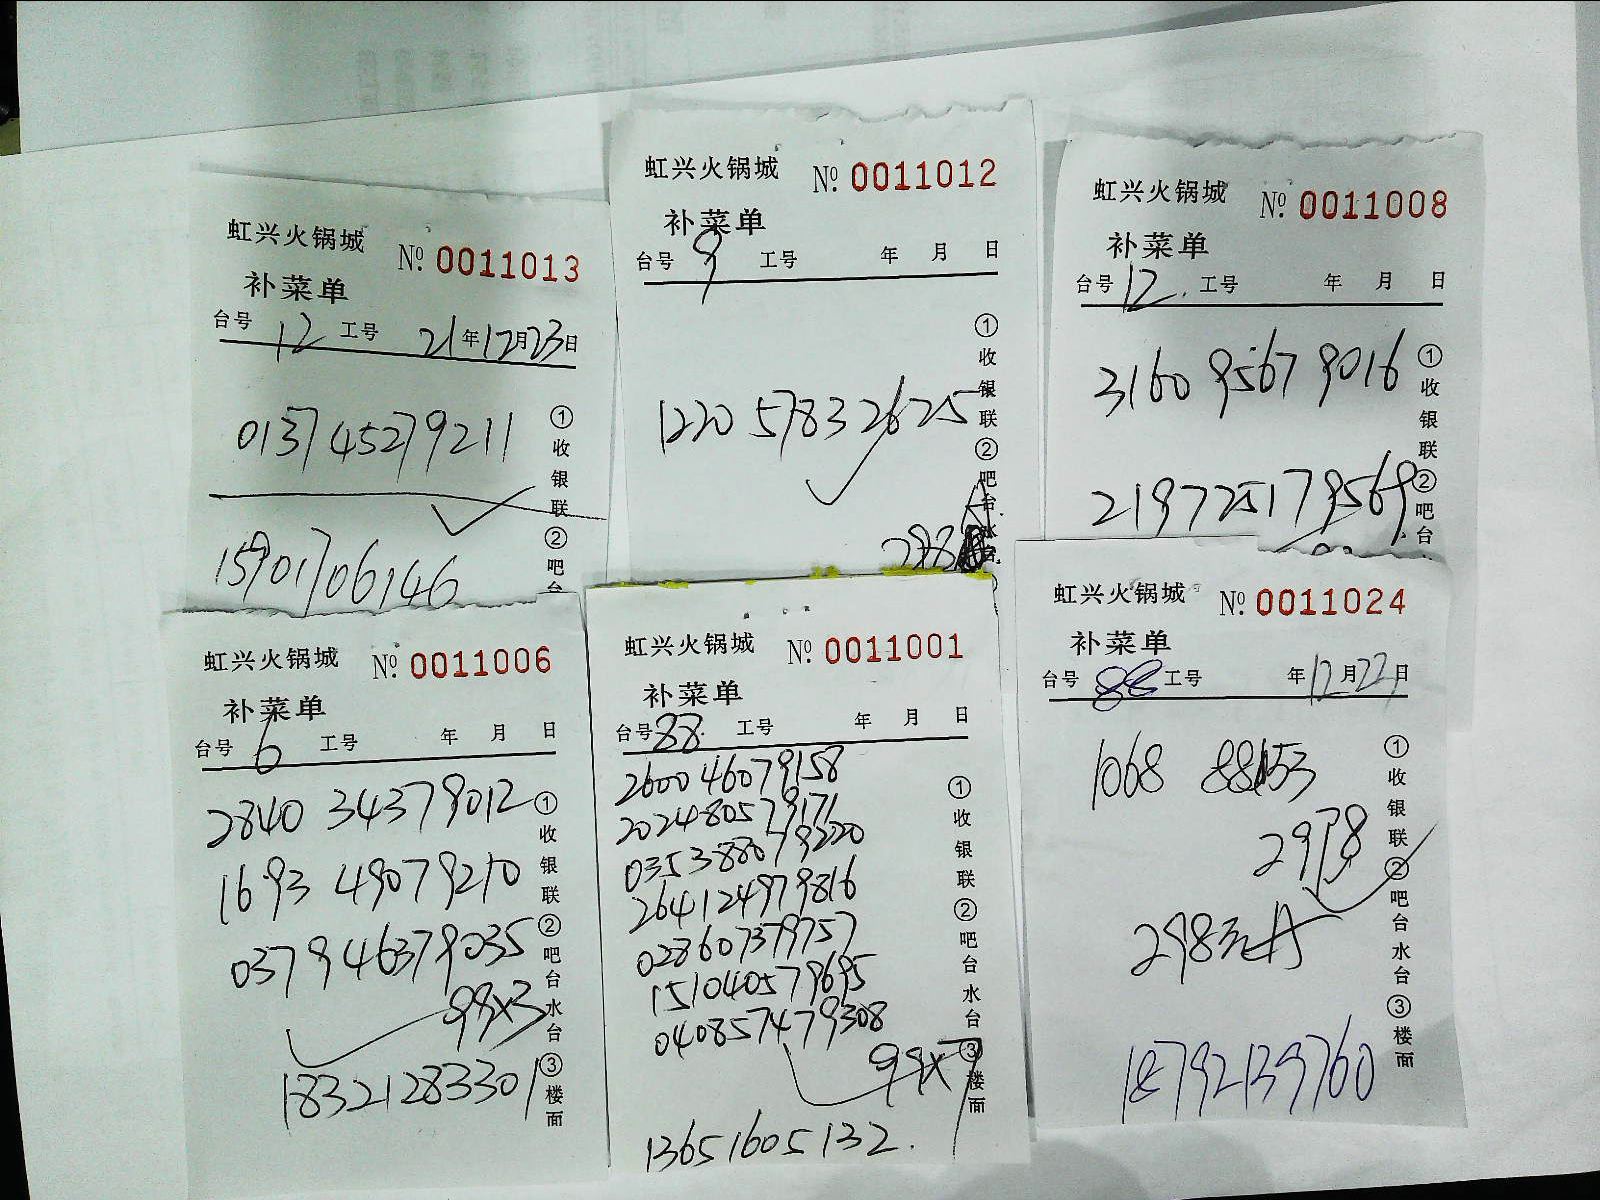 虹兴火锅城 №. 0011013
补菜单
台号 12 工号 21年12月23日
013745279211
15901706146
①收银联②吧台
虹兴火锅城 №. 0011012
补菜单
台号 9 工号 年 月 日
1220 57832625
①收银联②吧台水台
虹兴火锅城 №. 0011008
补菜单
台号 12. 工号 年 月 日
3160 95679016
219725179569
①收银联②吧台
虹兴火锅城 №. 0011006
补菜单
台号 6 工号 年 月 日
2840 34379012
1693 49079210
0379 46379035
99x3
18321283301
①收银联②吧台水台③楼面
虹兴火锅城 №. 0011001
补菜单
台号 88. 工号 年 月 日
260046079158
202480579171
035388079220
264124979816
028607379757
151040579695
040857479308
99x7
13651605132.
①收银联②吧台水台③楼面
虹兴火锅城 №. 0011024
补菜单
台号 88 工号 年12月22日
1068
298元
18792139760
①收银联②吧台水台③楼面